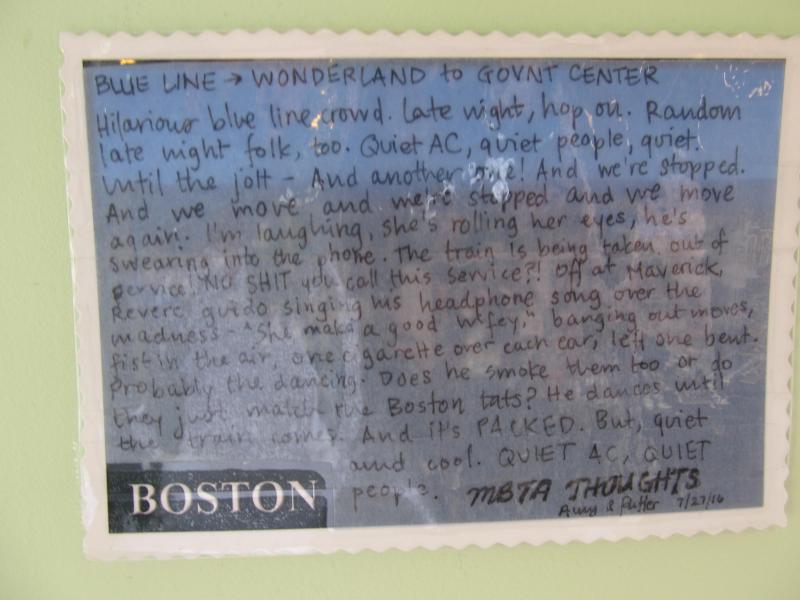 BLUE LINE → WONDERLAND to GOVNT CENTER
Hilarious blue line crowd. Late night, hop on. Random
late night folk, too. Quiet AC, quiet people, quiet.
Until the jolt - And another one! And we're stopped.
And we move and we're stopped and we move
again. I'm laughing, she's rolling her eyes, he's
swearing into the phone. The train is being taken out of
service! NO SHIT you call this service?! Off at Maverick,
Revere guido singing his headphone song over the
madness - "She make a good wifey," banging out moves,
fist in the air, one cigarette over each ear, left one bent.
Probably the dancing. Does he smoke them too or do
they just match the Boston tats? He dances until
the train comes. And it's PACKED. But, quiet
and cool. QUIET AC, QUIET
people. MBTA THOUGHTS
Amy & 7/27/16
BOSTON